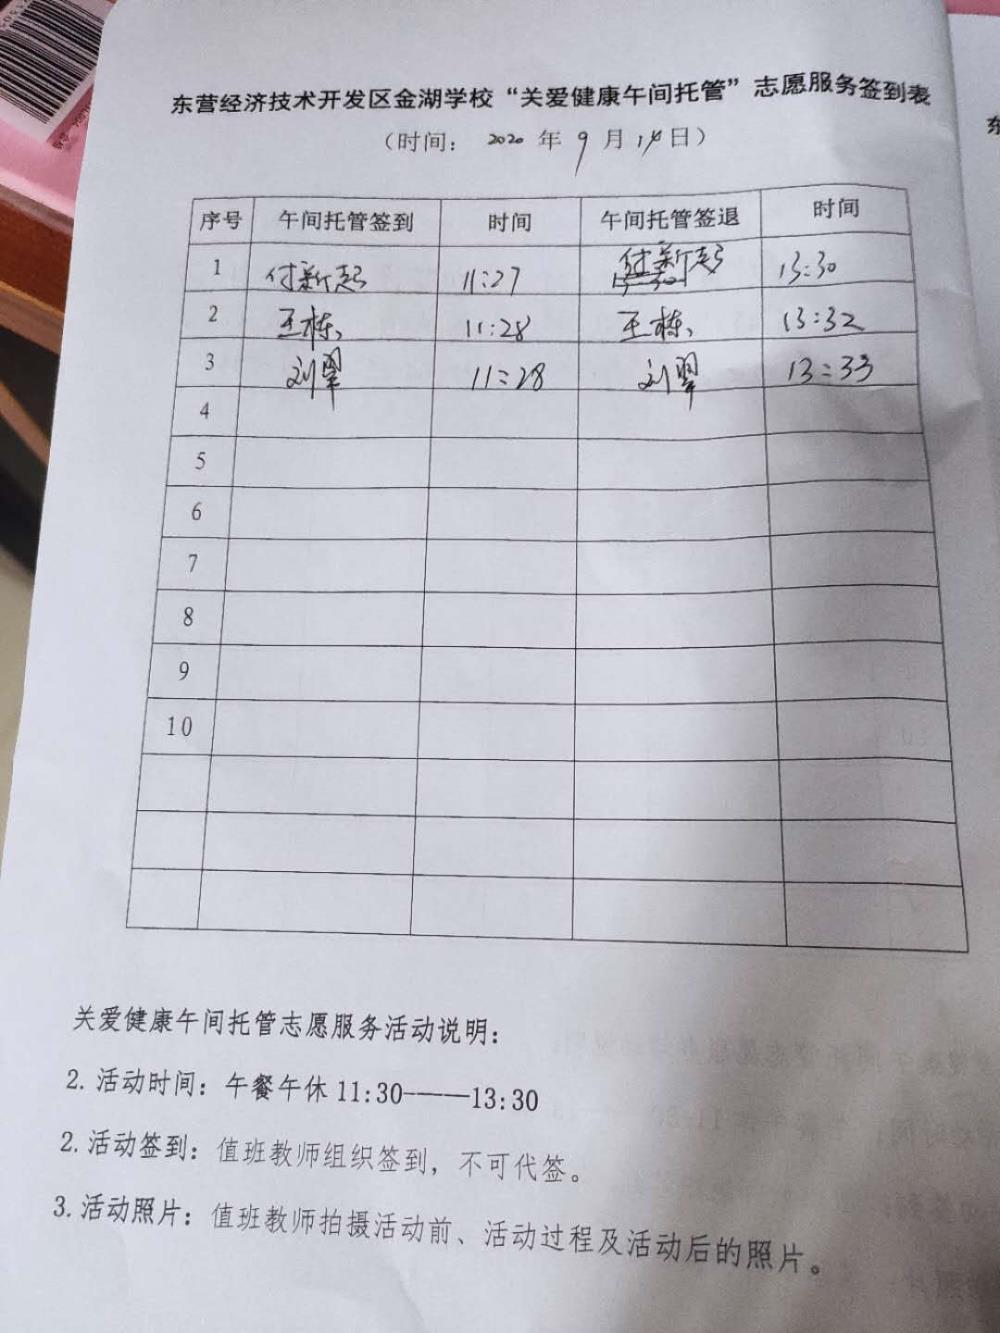 东营经济技术开发区金湖学校“关爱健康午间托管”志愿服务签到表
（时间： 2020 年 9 月 14 日）
序号 午间托管签到 时间 午间托管签退 时间
1 付新起 11:27 付新起 13:30
2 王栋 11:28 王栋 13:32
3 刘翠 11:28 刘翠 13:33
4
5
6
7
8
9
10
关爱健康午间托管志愿服务活动说明：
2. 活动时间：午餐午休 11:30——13:30
2. 活动签到：值班教师组织签到，不可代签。
3. 活动照片：值班教师拍摄活动前、活动过程及活动后的照片。